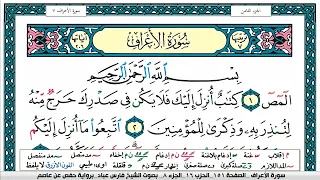 سورة الأعراف ٧
الجزء الثامن
سُورَةُ الأَعْرَافِ
بِسْمِ اللَّهِ الرَّحْمَٰنِ الرَّحِيمِ
الٓمٓصٓ ١ كِتَٰبٌ أُنزِلَ إِلَيْكَ فَلَا يَكُن فِى صَدْرِكَ حَرَجٌ مِّنْهُ
لِتُنذِرَ بِهِۦ وَذِكْرَىٰ لِلْمُؤْمِنِينَ ٢ ٱتَّبِعُوا۟ مَآ أُنزِلَ إِلَيْكُم
سورة الأعراف . الصفحة ١٥١ . الحزب ١٦ . الجزء ٨ . بصوت الشيخ فارس عباد . برواية حفص عن عاصم